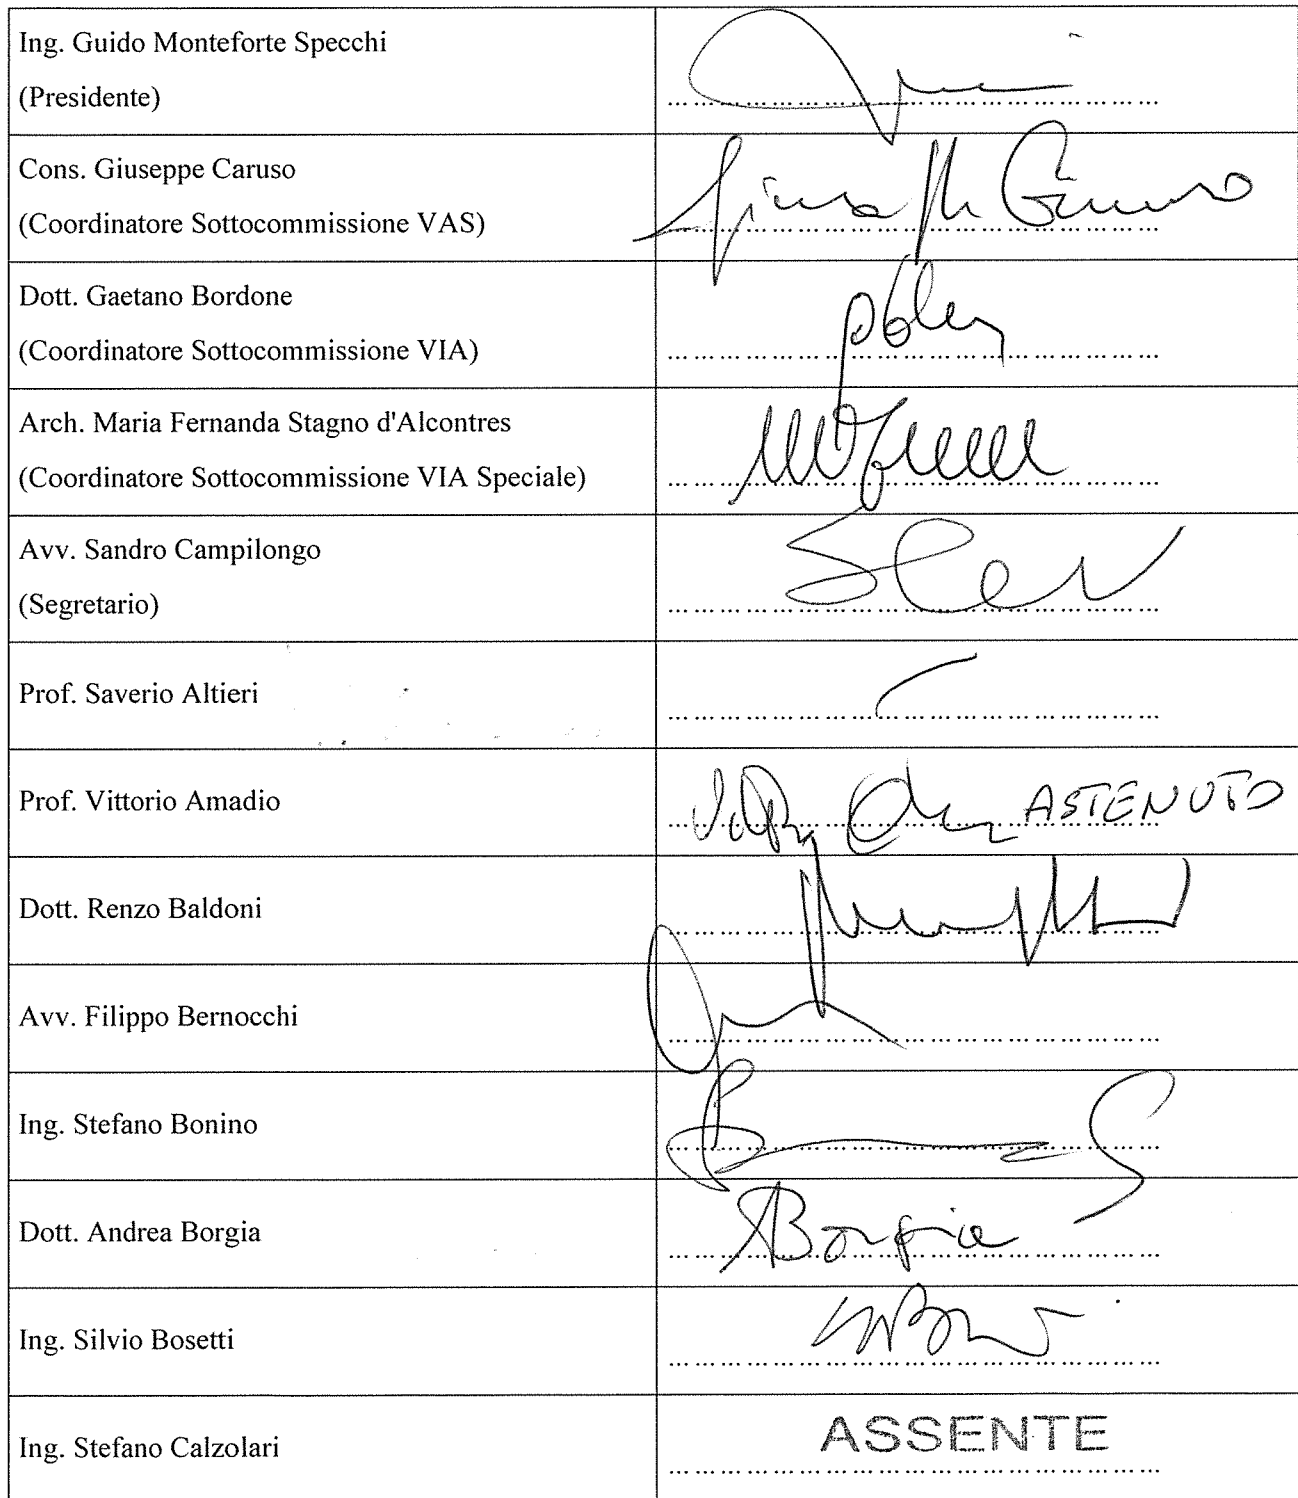 Ing. Guido Monteforte Specchi
(Presidente)
Cons. Giuseppe Caruso
(Coordinatore Sottocommissione VAS)
Dott. Gaetano Bordone
(Coordinatore Sottocommissione VIA)
Arch. Maria Fernanda Stagno d'Alcontres
(Coordinatore Sottocommissione VIA Speciale)
Avv. Sandro Campilongo
(Segretario)
Prof. Saverio Altieri
Prof. Vittorio Amadio
ASTENUTO
Dott. Renzo Baldoni
Avv. Filippo Bernocchi
Ing. Stefano Bonino
Dott. Andrea Borgia
ABorgia
Ing. Silvio Bosetti
Ing. Stefano Calzolari
ASSENTE